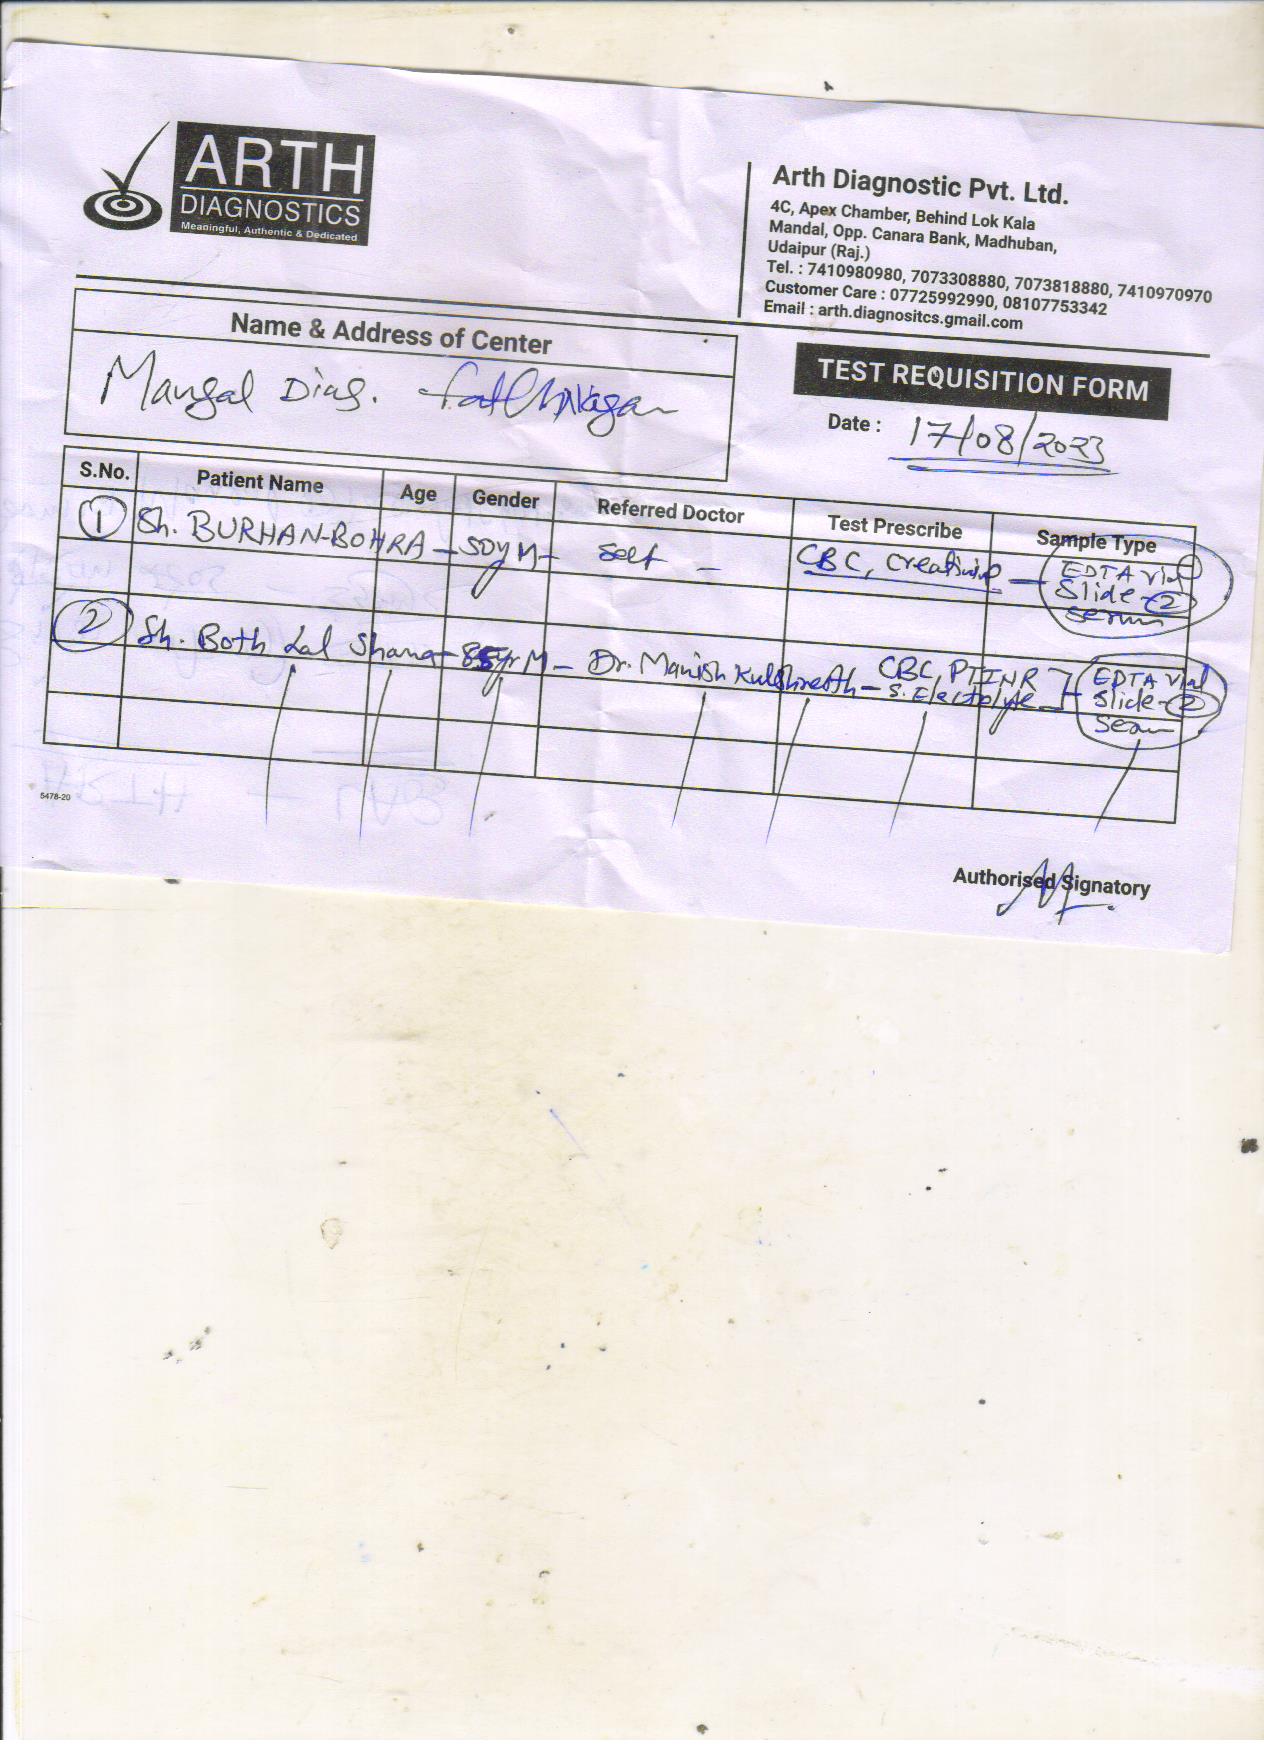 ARTH
DIAGNOSTICS
Meaningful, Authentic & Dedicated
Arth Diagnostic Pvt. Ltd.
4C, Apex Chamber, Behind Lok Kala
Mandal, Opp. Canara Bank, Madhuban,
Udaipur (Raj.)
Tel. : 7410980980, 7073308880, 7073818880, 7410970970
Customer Care : 07725992990, 08107753342
Email : arth.diagnositcs.gmail.com
Name & Address of Center
Mangal Diag.
TEST REQUISITION FORM
Date : 17/08/2023
S.No. Patient Name Age Gender Referred Doctor Test Prescribe Sample Type
1 Sh. BURHAN-BOHRA - 50y M - Self - CBC, Creatinine - EDTA vial
Slide-2
serum
2 Sh. Both Lal - 85yr M - Dr. Manish - CBC, PTINR EDTA vial
S. Electrolyte Slide-2
Serum
5478-20
Authorised Signatory